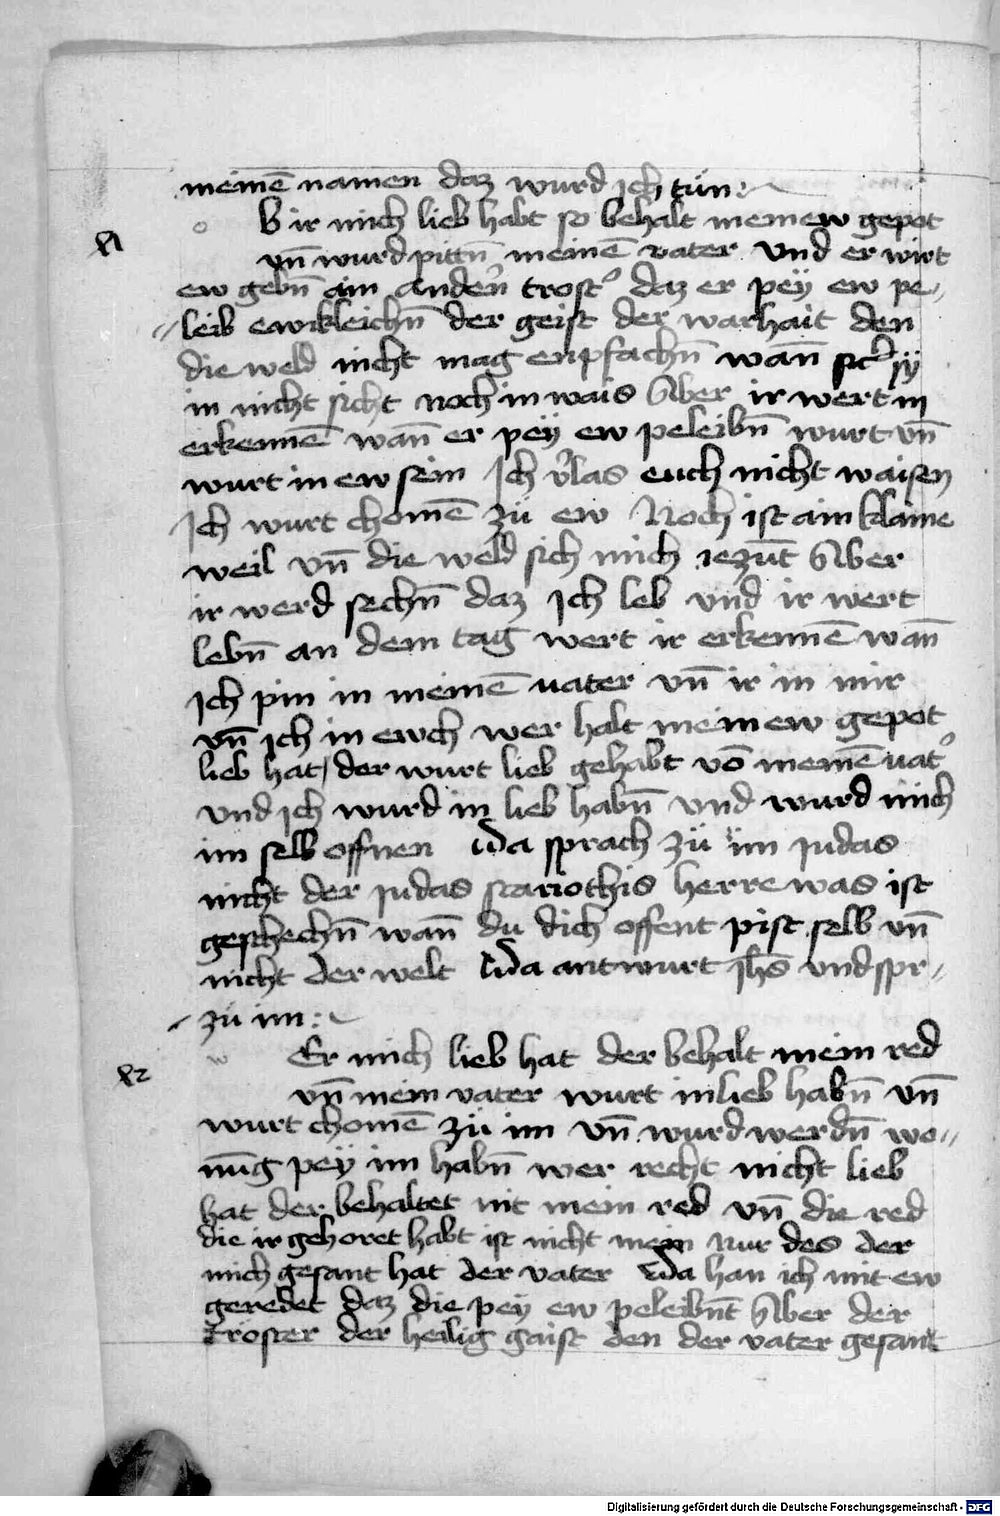 meinē namen daz wurd ich tün :~
o b ir mich lieb habt so behalt meinew gepot
vn̄ wurd pittn̄ meinē vater Und er wirt
ew gebn̄ ain anden̄ trost' daz er peÿ ew pe//
//leib ewikleichn̄ der geist der warhait den
die weld nicht mag enpfachn̄ wan̄ sy
in nicht sicht noch in wais Aber ir wert in
erkennē wan̄ er peÿ ew peleibn̄ wurt vn̄
wurt in ew sein Ich v'las euch nicht waisen
Ich wurt chomē zü ew Noch ist ain klaine
weil vn̄ die weld sich mich iezūt Aber
ir werd sechn̄ daz Ich leb und ir wert
lebn̄ an dem tag wert ir erkennē wan̄
Ich pin in meinē vater vn̄ ir in mir
vn̄ ich in ewch wer halt meinew gepot
lieb hat / der wurt lieb gehabt vō meinē vat'
Und ich wurd in lieb habn̄ Und wurd mich
im selb offnen Da sprach zü im iudas
nicht der iudas scariothis herre was ist
geschechn̄ wan̄ du dich offent pist selb vn̄
nicht der welt Da antwurt jhs̄ und spr//
/ zü im :~
w Er mich lieb hat der behalt mein red
vn̄ mein vater wurt in lieb habn̄ vn̄
wurt chomē zü im vn̄ wurd werdn̄ wo//
nūg peÿ im habn̄ wer recht nicht lieb
hat der behaltet nit mein red vn̄ die red
die ir gehoret habt ist nicht mein nur des der
mich gesant hat der vater Da han ich mit ew
geredet daz die peÿ ew peleibn̄t Aber der
troster der heilig gaist den der vater gesant
Digitalisierung gefördert durch die Deutsche Forschungsgemeinschaft - DFG